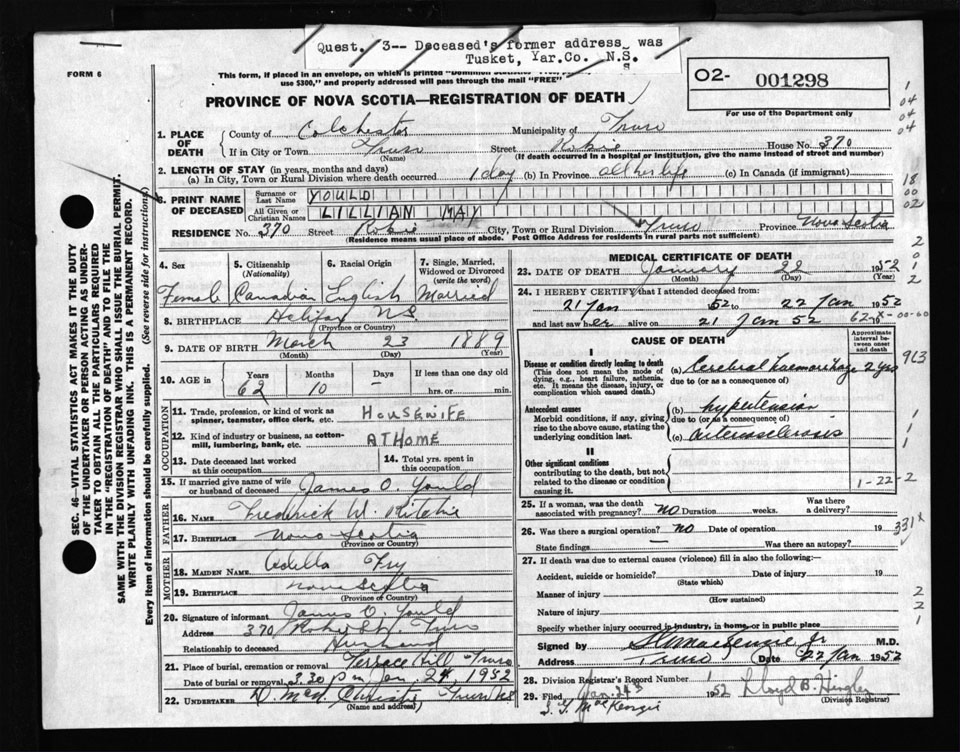 Quest. 3-- Deceased's former address was
Tusket, Yar.Co. N.S.
FORM 6
This form, if placed in an envelope, on which is printed "Dominion Statistics
use $300," and properly addressed will pass through the mail "FREE"
O2- 001298
PROVINCE OF NOVA SCOTIA—REGISTRATION OF DEATH
For use of the Department only
1. PLACE OF DEATH
County of Colchester Municipality of Truro
If in City or Town Truro Street Robie House No. 370
(Name) (If death occurred in a hospital or institution, give the name instead of street and number)
2. LENGTH OF STAY (in years, months and days)
(a) In City, Town or Rural Division where death occurred 1 day (b) In Province all her life (c) In Canada (if immigrant)
3. PRINT NAME OF DECEASED
Surname or Last Name YOULD
All Given or Christian Names LILLIAN MAY
RESIDENCE No. 370 Street Robie City, Town or Rural Division Truro Province Nova Scotia
(Residence means usual place of abode. Post Office Address for residents in rural parts not sufficient)
4. Sex Female
5. Citizenship (Nationality) Canadian
6. Racial Origin English
7. Single, Married, Widowed or Divorced (write the word) Married
8. BIRTHPLACE Halifax N.S.
(Province or Country)
9. DATE OF BIRTH March 23 1889
(Month) (Day) (Year)
10. AGE in Years 62 Months 10 Days - If less than one day
hrs. or min.
OCCUPATION
11. Trade, profession, or kind of work as spinner, teamster, office clerk, etc. HOUSEWIFE
12. Kind of industry or business, as cotton-mill, lumbering, bank, etc. AT HOME
13. Date deceased last worked at this occupation
14. Total yrs. spent in this occupation
15. If married give name of wife or husband of deceased James O. Yould
FATHER
16. NAME Fredrick W. Ritchie
17. BIRTHPLACE Nova Scotia
(Province or Country)
MOTHER
18. MAIDEN NAME Adella Fry
19. BIRTHPLACE Nova Scotia
(Province or Country)
20. Signature of informant James O. Yould
Address 370 Robie St. Truro
Relationship to deceased Husband
21. Place of burial, cremation or removal Terrace Hill - Truro
Date of burial or removal 3.30 p m Jan 24 1952
22. UNDERTAKER Truro NS
(Name and address)
MEDICAL CERTIFICATE OF DEATH
23. DATE OF DEATH January 22 1952
(Month) (Day) (Year)
24. I HEREBY CERTIFY that I attended deceased from:
21 Jan 52 to 22 Jan 1952
and last saw her alive on 21 Jan 52
CAUSE OF DEATH
Approximate interval between onset and death
I
Disease or condition directly leading to death
(This does not mean the mode of dying, e.g., heart failure, asthenia, etc. It means the disease, injury, or complication which caused death.)
(a) Cerebral haemorrhage 2 yrs
due to (or as a consequence of)
Antecedent causes
Morbid conditions, if any, giving rise to the above cause, stating the underlying condition last.
(b) hypertension
due to (or as a consequence of)
(c) arteriosclerosis
II
Other significant conditions
contributing to the death, but not related to the disease or condition causing it.
1-22-2
25. If a woman, was the death associated with pregnancy? no Duration weeks. Was there a delivery?
26. Was there a surgical operation? no Date of operation 19
State findings — Was there an autopsy?
27. If death was due to external causes (violence) fill in also the following:—
Accident, suicide or homicide? Date of injury 19
(State which)
Manner of injury
(How sustained)
Nature of injury
Specify whether injury occurred in industry, in home, or in public place
Signed by M.D.
Address Truro Date 22 Jan 1952
28. Division Registrar's Record Number
29. Filed Jan. 24 1952 Lloyd B. Hingley
(Division Registrar)
SEC. 46—VITAL STATISTICS ACT MAKES IT THE DUTY
OF THE UNDERTAKER OR PERSON ACTING AS UNDER-
TAKER TO OBTAIN ALL THE PARTICULARS REQUIRED
IN THE "REGISTRATION OF DEATH" AND TO FILE THE
SAME WITH THE DIVISION REGISTRAR WHO SHALL ISSUE THE BURIAL PERMIT.
WRITE PLAINLY WITH UNFADING INK. THIS IS A PERMANENT RECORD.
Every item of information should be carefully supplied. (See reverse side for instructions)